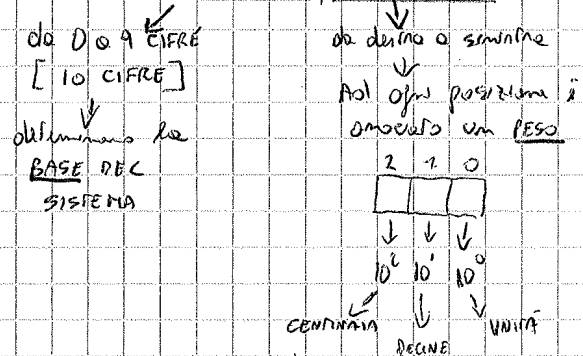 da 0 a 9 CIFRE
[ 10 CIFRE ]
determinano la
BASE DEL
SISTEMA
da destra a sinistra
Ad ogni posizione è
associato un PESO
2 1 0
10² 10¹ 10⁰
CENTINAIA
DECINE
UNITÀ